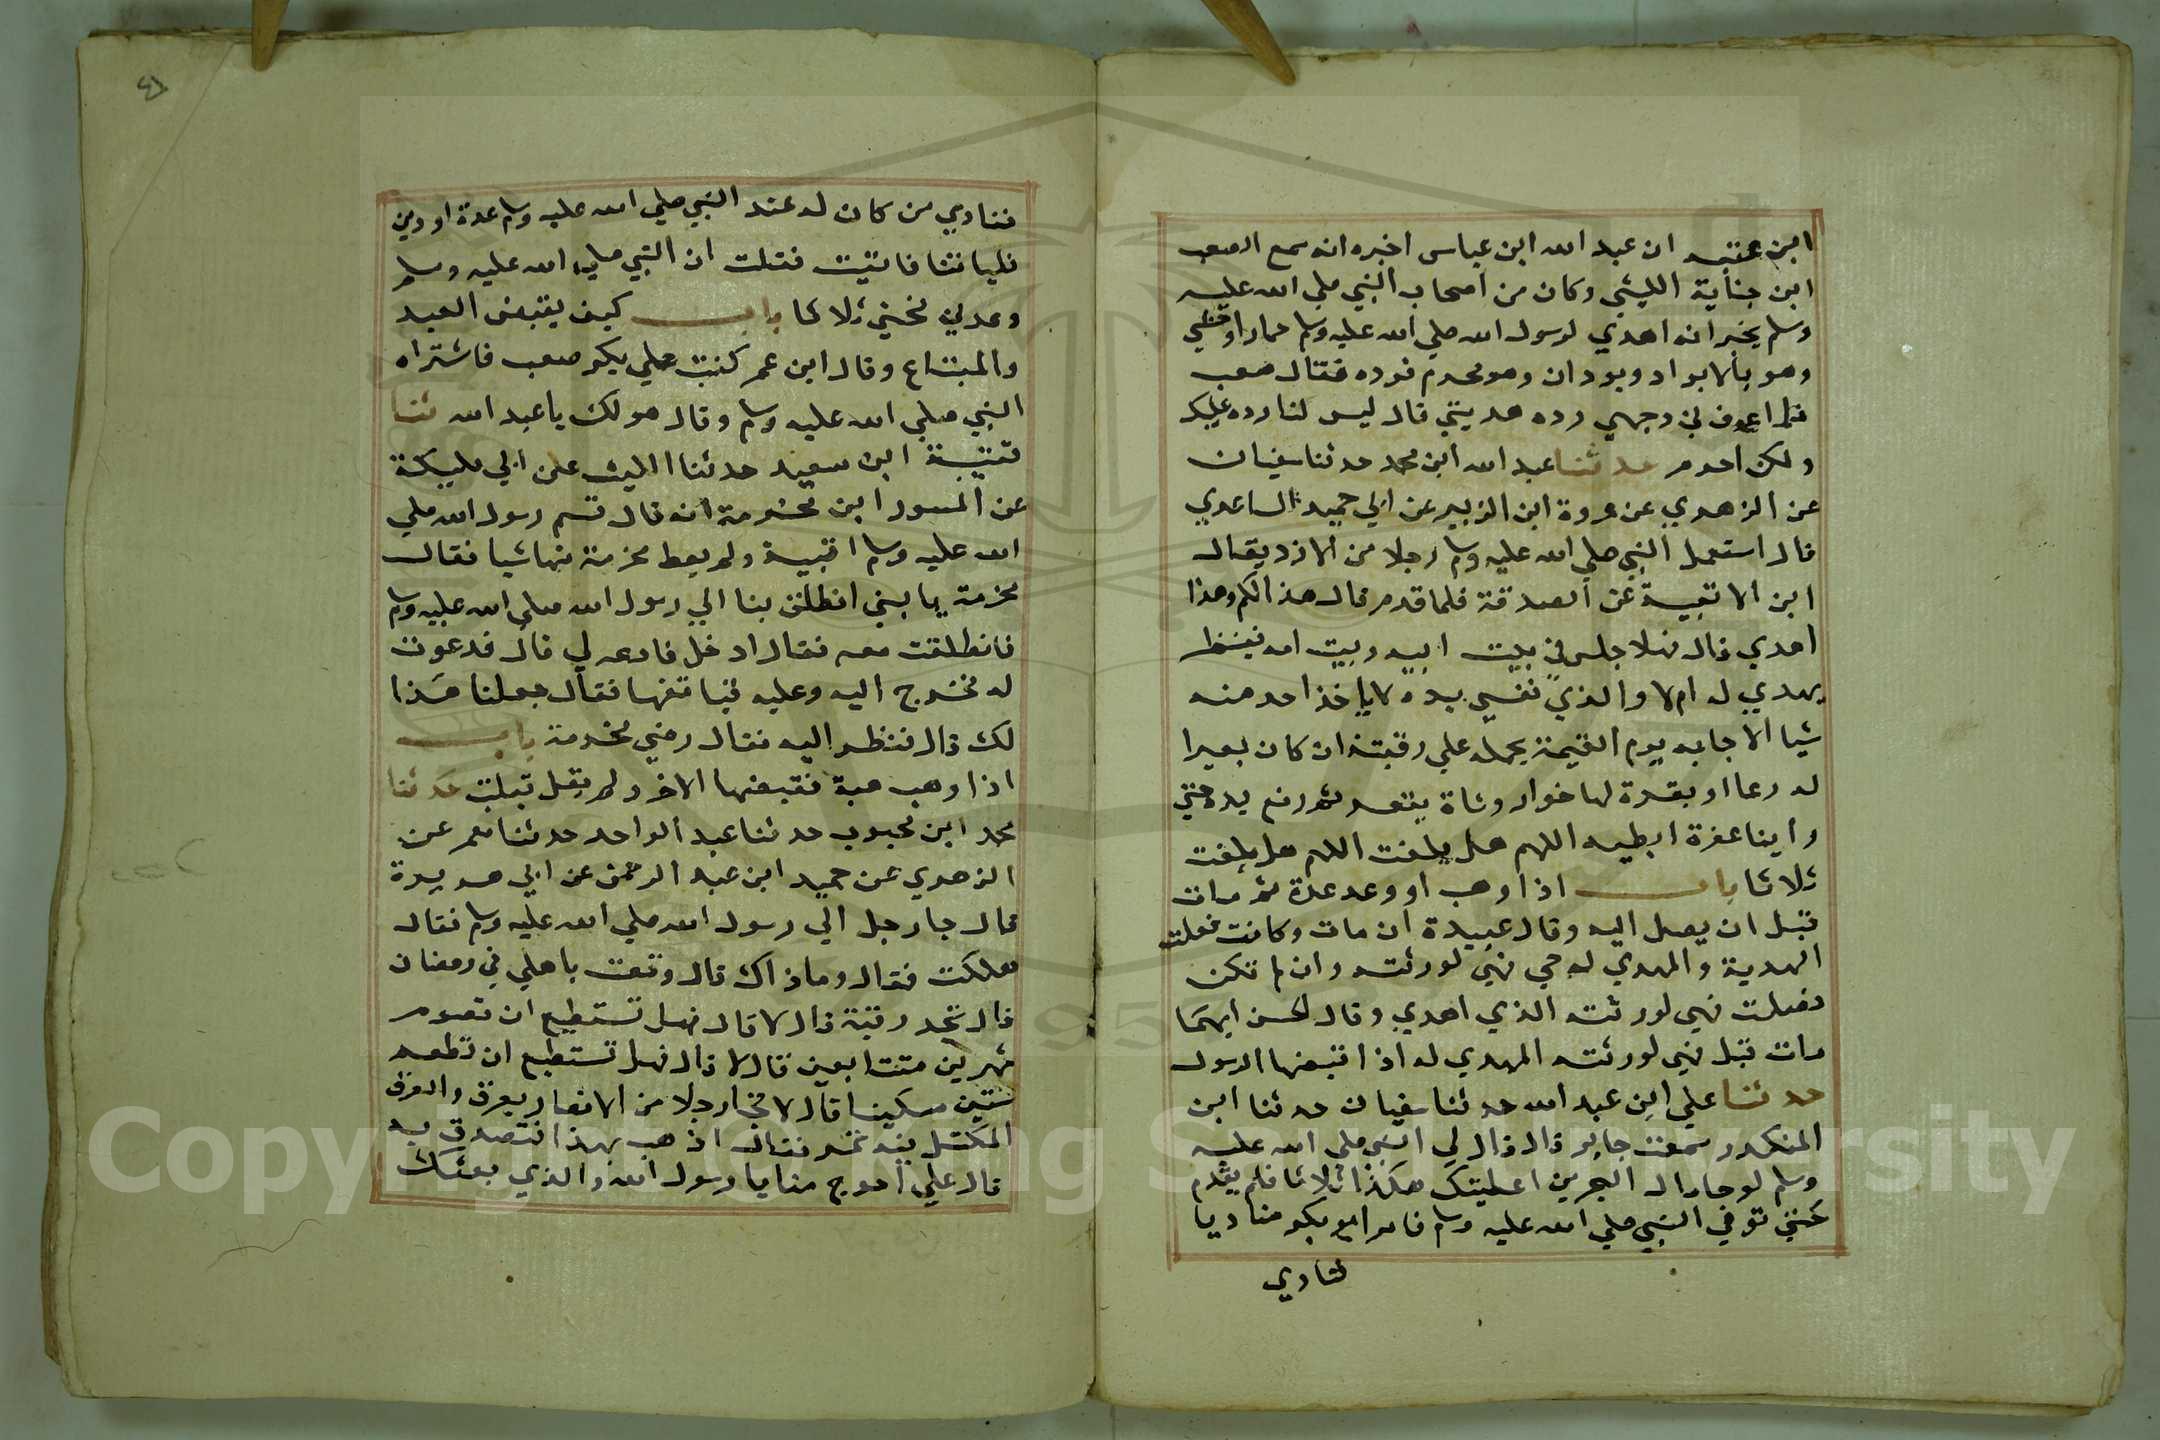 ابن عتبه ان عبد الله ابن عباس اخبره انه سمع الصعب
ابن جثاية الليثي وكان من اصحاب النبي صلي الله عليه
وسلم يخبر انه اهدي لرسول الله صلي الله عليه وسلم حمارا وحشي
وهو بالابواد وبودان وهو محرم فرده فقال صعب
فلما اعرف في وجهي رده هديتي قال ليس لنا رده عليك
ولكن احرم حدثنا عبد الله ابن محمد حدثنا سفيان
عن الزهري عن عروة ابن الزبير عن ابي حميد الساعدي
قال استعمل النبي صلي الله عليه وسلم رجلا من الازد يقال
ابن الاتبية عن الصدقة فلما قدم قال هذا لكم وهذا
اهدي قال فهلا جلس في بيت ابيه وبيت امه فينظر
يهدي له ام لا والذي نفسي بيده لا ياخذ احد منه
شيا الا جا به يوم القيمة يحمله علي رقبته ان كان بعيرا
له رعا او بقرة لها خوار وشاة يتعر ثم رفع يده حتي
راينا عفرة ابطيه اللهم هل بلغت اللهم هل بلغت
ثلاثا باب اذا وهب او وعد عدة ثم مات
قبل ان يصل اليه وقال عبيدة ان مات وكانت فصلت
الهدية والمهدي له حي فهي لورثته وان لم تكن
فصلت فهي لورثته الذي اهدي وقال الحسن ايهما
مات قبل فهي لورثته المهدي له اذا اقبضها الرسول
حدثنا علي ابن عبد الله حدثنا سفيان حدثنا ابن
المنكدر سمعت جابر قال قال لي النبي صلي الله عليه
وسلم لو جا مال البحرين اعطيتك هكذا ثلاثا فلم يقدم
حتي توفي النبي صلي الله عليه وسلم فامر ابو بكر مناديا
فنادي
٤١
فنادي من كان له عند النبي صلي الله عليه وسلم عدة او دين
فلياتنا فاتيت فقلت ان النبي صلي الله عليه وسلم
وعدني فحثي ثلاثا باب كيف يقبض العبد
والمتاع وقال ابن عمر كنت علي بكر صعب فاشتراه
النبي صلي الله عليه وسلم وقال هو لك يا عبد الله ثنا
قتيبة ابن سعيد حدثنا الليث عن ابي مليكة
عن المسور ابن مخرمة انه قال قسم رسول الله صلي
الله عليه وسلم اقبية ولم يعط مخرمة منها شيا فقال
مخرمة يا بني انطلق بنا الي رسول الله صلي الله عليه وسلم
فانطلقت معه فقال ادخل فادعه لي قال فدعوت
له فخرج اليه وعليه قبا منها فقال جعلنا هذا
لك قال فنظر اليه فقال رضي مخرمة باب
اذا وهب هبة فقبضها الاخر ولم يقل قبلت حدثنا
محمد ابن محبوب حدثنا عبد الواحد حدثنا معمر عن
الزهري عن حميد ابن عبد الرحمن عن ابي هريرة
قال جا رجل الي رسول الله صلي الله عليه وسلم فقال
هلكت فقال وما ذاك قال وقعت باهلي في رمضان
قال تجد رقبة قال لا قال فهل تستطيع ان تصوم
شهرين متتابعين قال لا قال فهل تستطيع ان تطعم
ستين مسكينا قال لا فجا رجلا من الانصار بعرق والعرق
المكتل فيه تمر فقال اذهب بهذا فتصدق به
قال علي احوج منا يا رسول الله والذي بعثك